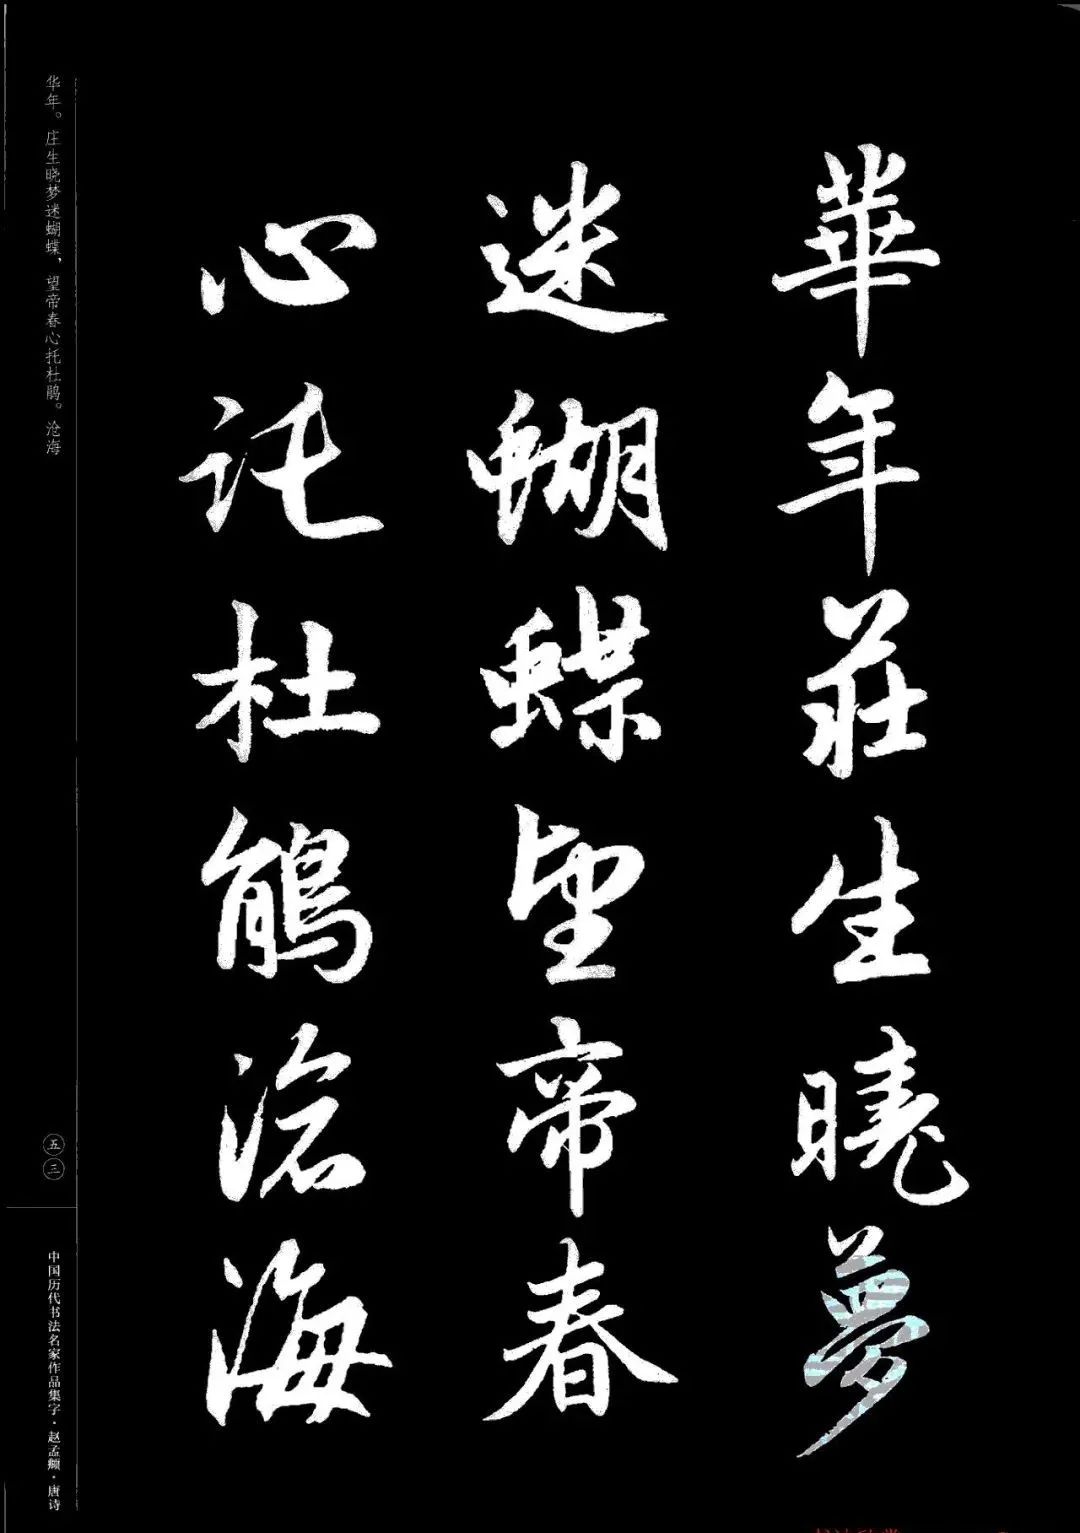 華年莊生曉夢
迷蝴蝶望帝春
心託杜鵑滄海
华年。庄生晓梦迷蝴蝶，望帝春心托杜鹃。沧海
五三
中国历代书法名家作品集字·赵孟頫·唐诗